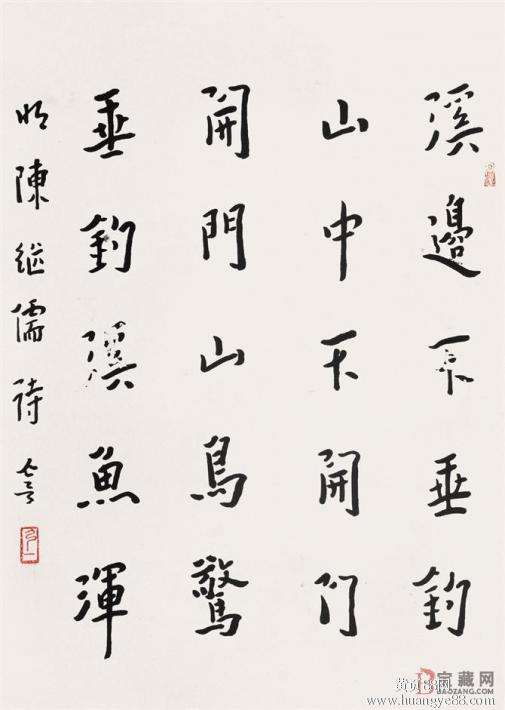 溪邊不垂釣
山中不開门
開門山鳥驚
垂釣溪魚渾
明陳继儒詩
宝藏网
BAOZANG.COM
黄页88网
www.huangye88.com